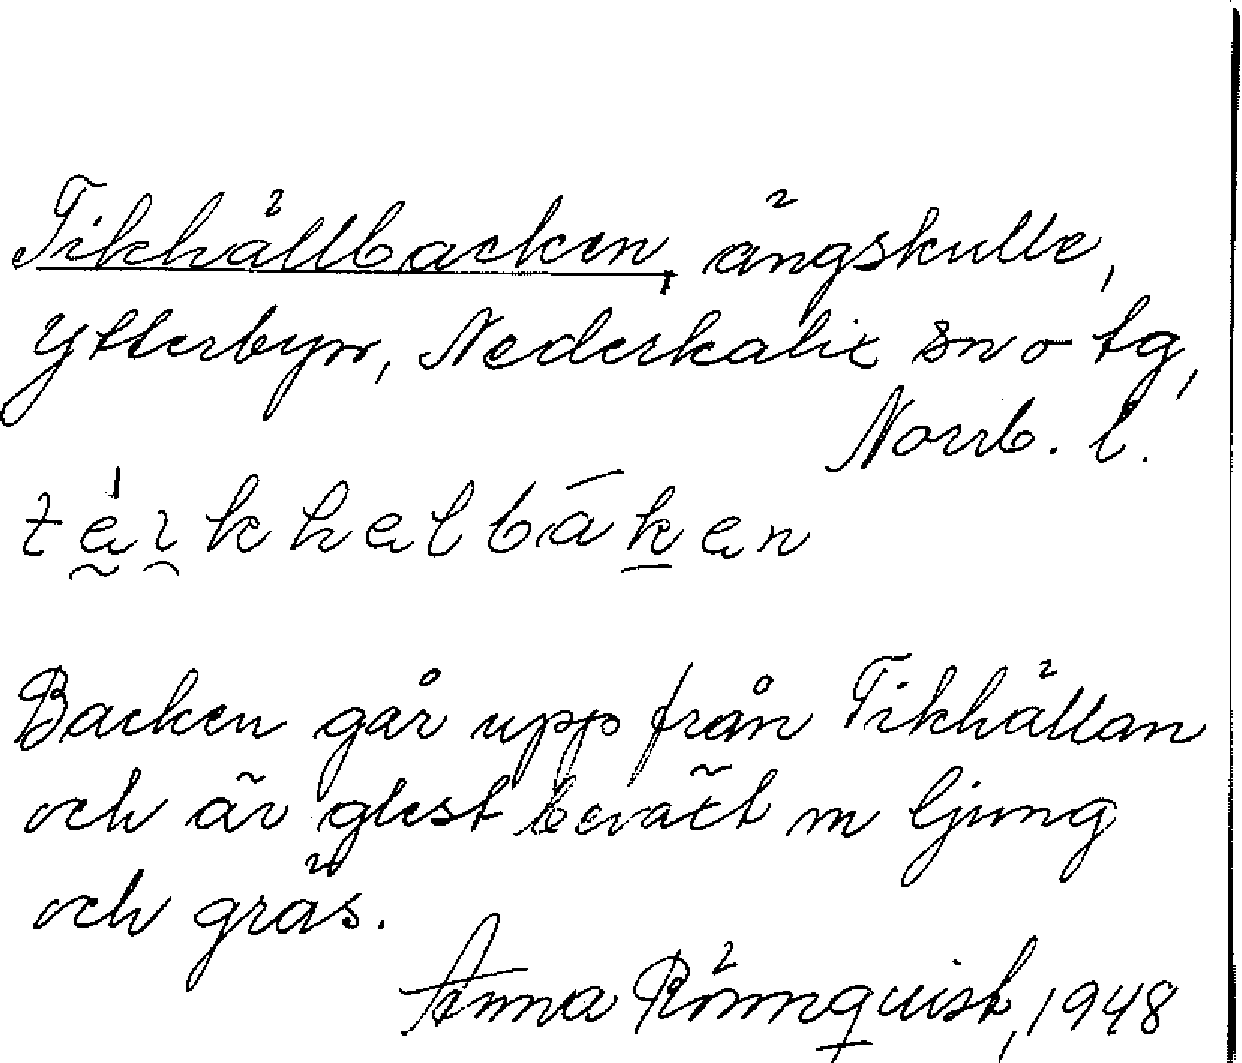 Tikhällbacken, ängskulle,
Ytterbyn, Nederkalix sn o tg,
Norrb. l.
Backen går upp från Tikhällan
och är glest beväxt m ljung
och gräs.
Anna Rönnquist, 1948